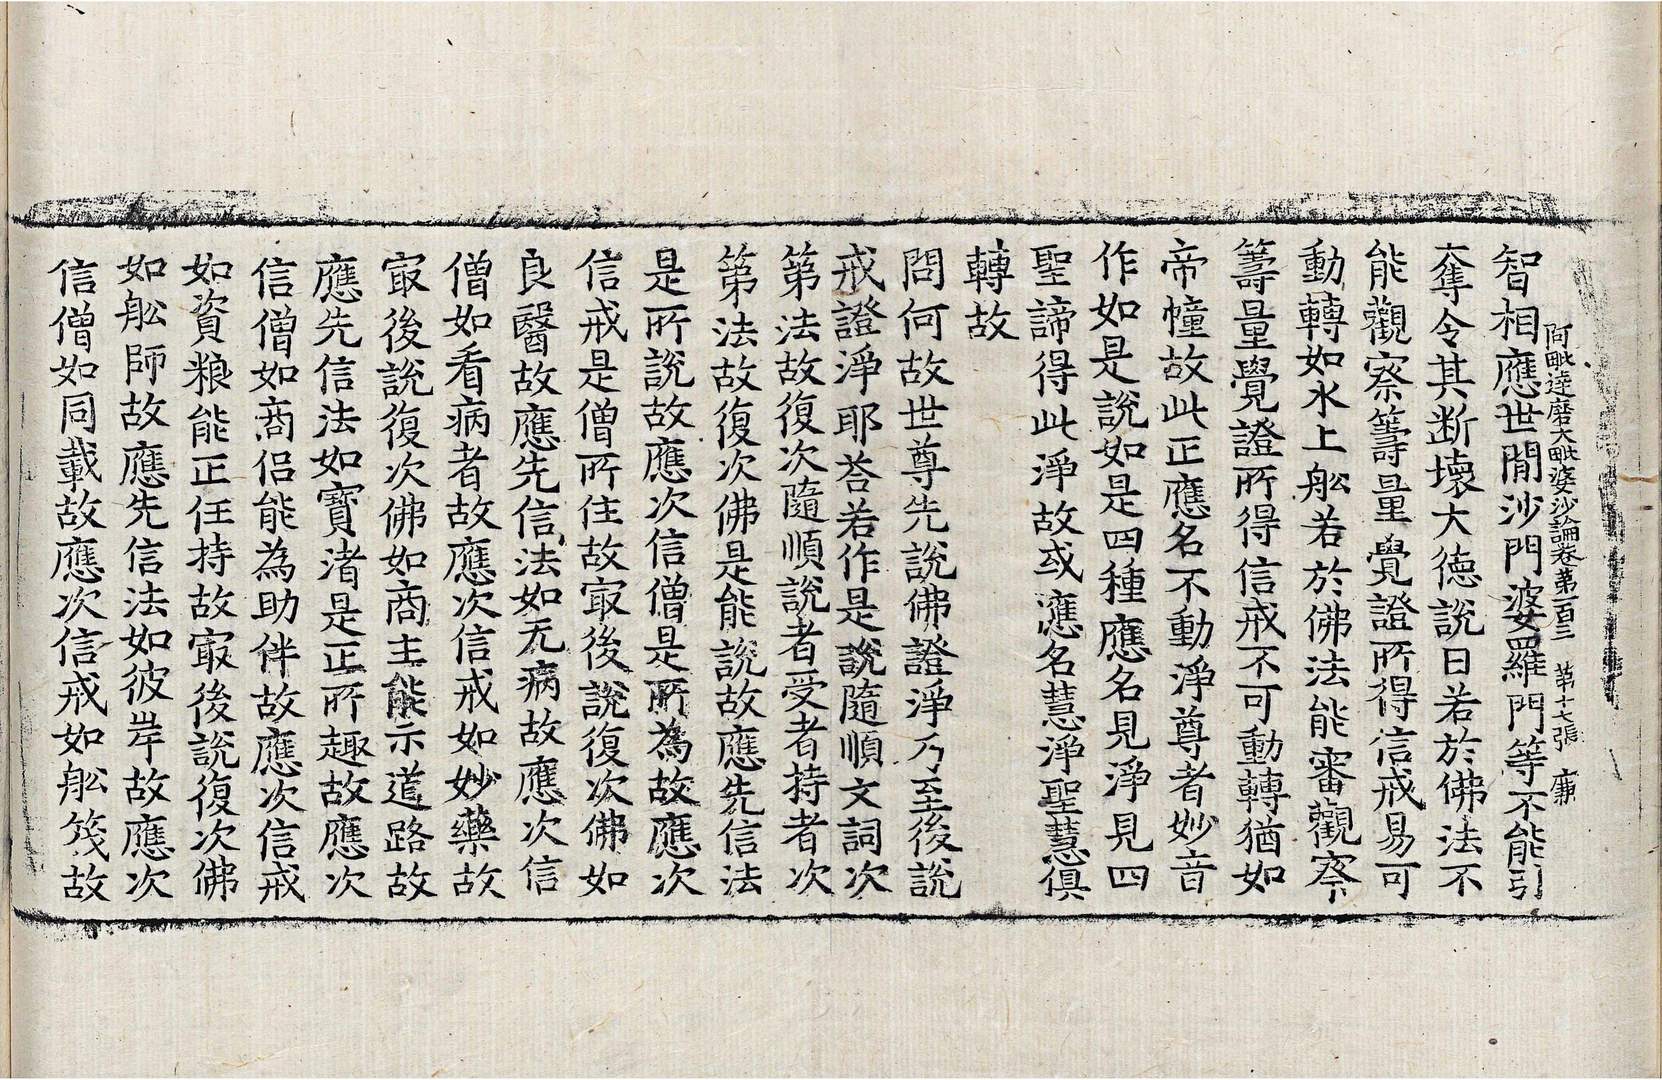 阿毗達磨大毗婆沙論卷第一百三　第十七張　廉
智相應世間沙門婆羅門等不能引
奪令其断壞大德說曰若於佛法不
能觀察籌量覺證所得信戒易可
動轉如水上舩若於佛法能審觀察
籌量覺證所得信戒不可動轉猶如
帝幢故此正應名不動淨尊者妙音
作如是說如是四種應名見淨見四
聖諦得此淨故或應名慧淨聖慧俱
轉故
問何故世尊先說佛證淨乃至後說
戒證淨耶荅若作是說隨順文詞次
第法故復次隨順說者受者持者次
第法故復次佛是能說故應先信法
是所說故應次信僧是所為故應次
信戒是僧所住故㝡後說復次佛如
良醫故應先信法如无病故應次信
僧如看病者故應次信戒如妙藥故
㝡後說復次佛如商主能示道路故
應先信法如寶渚是正所趣故應次
信僧如商侣能為助伴故應次信戒
如資粮能正任持故㝡後說復次佛
如舩師故應先信法如彼岸故應次
信僧如同載故應次信戒如舩筏故